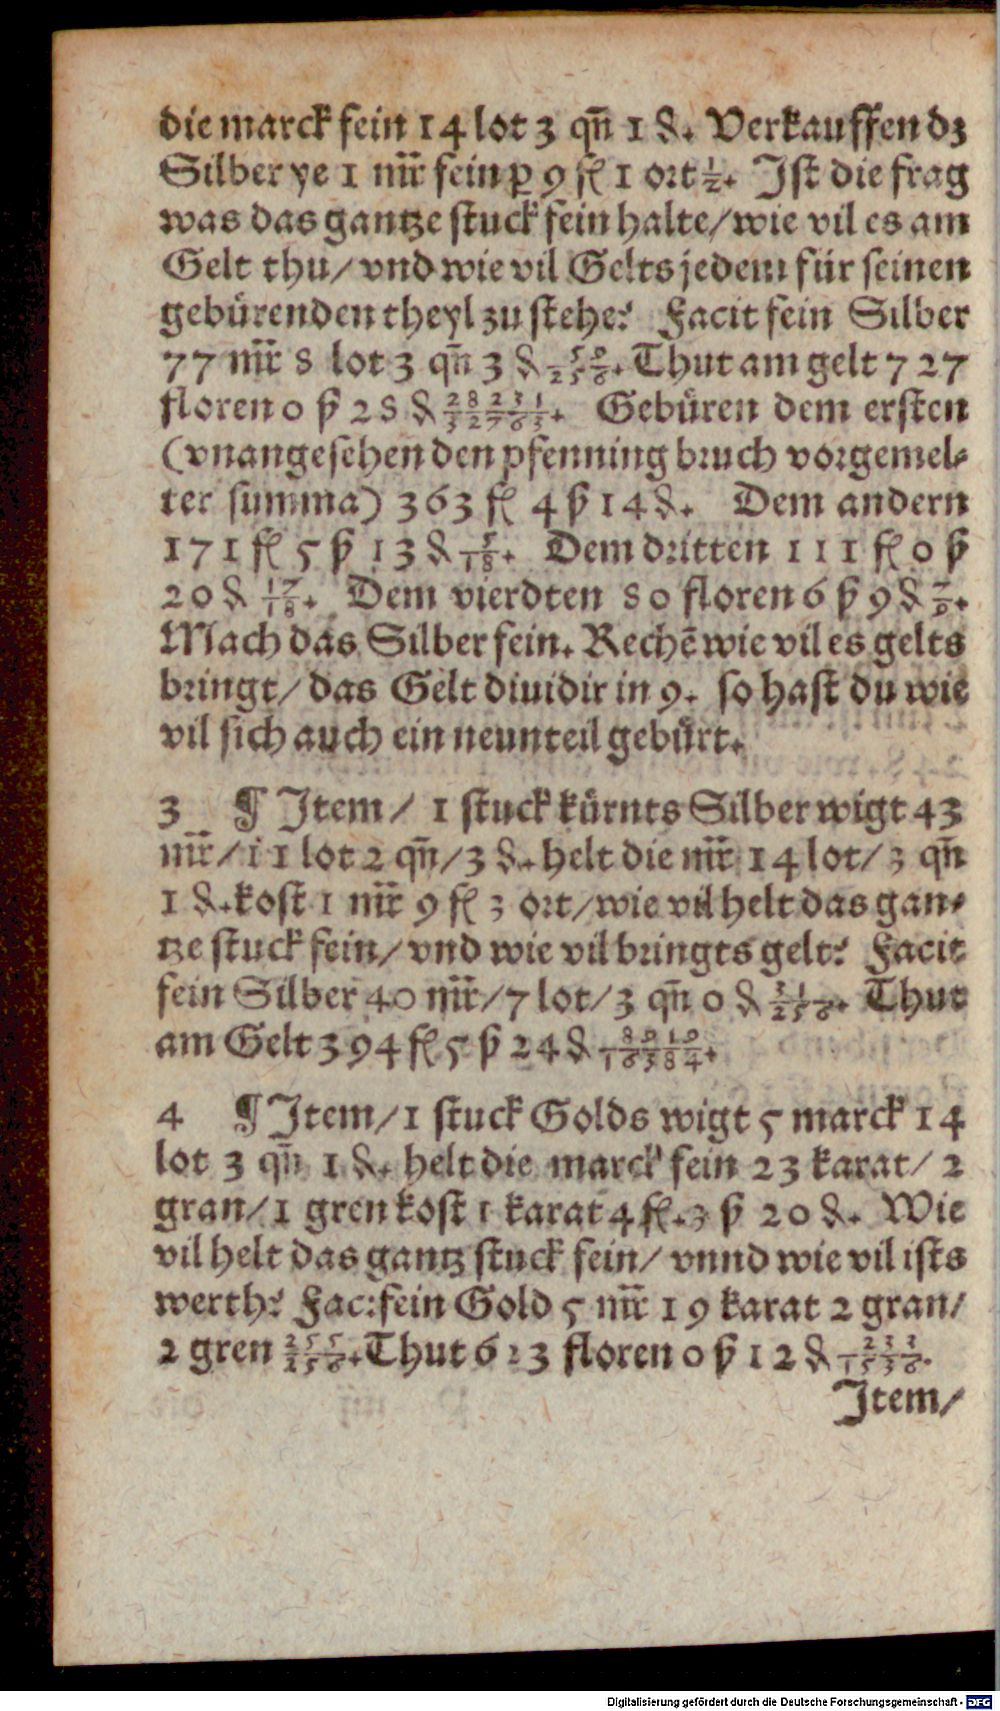 die marck fein 14 lot 3 qn̄ 1 ₰. Verkauffen dz
Silber ye 1 mr̄ fein ꝑ 9 fl 1 ort ½. Jst die frag
was das gantze stuck fein halte/wie vil es am
Gelt thu/vnd wie vil Gelts jedem für seinen
gebürenden theyl zu stehe? Facit fein Silber
77 mr̄ 8 lot 3 qn̄ 3 ₰ 59/256. Thut am gelt 727
floren 0 ß 28 ₰ 28231/32763. Gebüren dem ersten
(vnangesehen den pfenning bruch vorgemel-
ter summa) 363 fl 4 ß 14 ₰. Dem andern
171 fl 5 ß 13 ₰ 5/18. Dem dritten 111 fl 0 ß
20 ₰ 17/18. Dem vierdten 80 floren 6 ß 9 ₰ 7/9.
Mach das Silber fein. Rechē wie vil es gelts
bringt/das Gelt diuidir in 9. so hast du wie
vil sich auch ein neunteil gebürt.
3 ¶ Jtem/ 1 stuck kürnts Silber wigt 43
mr̄/11 lot 2 qn̄/3 ₰. helt die mr̄ 14 lot/3 qn̄
1 ₰. kost 1 mr̄ 9 fl 3 ort/wie vil helt das gan-
tze stuck fein/vnd wie vil bringts gelt? Facit
fein Silber 40 mr̄/7 lot/3 qn̄ 0 ₰ 31/256. Thut
am Gelt 394 fl 5 ß 24 ₰ 8919/16384.
4 ¶ Jtem/1 stuck Golds wigt 5 marck 14
lot 3 qn̄ 1 ₰. helt die marck fein 23 karat/2
gran/1 gren kost 1 karat 4 fl. 3 ß 20 ₰. Wie
vil helt das gantz stuck fein/vnnd wie vil ists
werth? Fac: fein Gold 5 mr̄ 19 karat 2 gran/
2 gren 255/256. Thut 623 floren 0 ß 12 ₰ 233/1536.
Jtem/
Digitalisierung gefördert durch die Deutsche Forschungsgemeinschaft - DFG